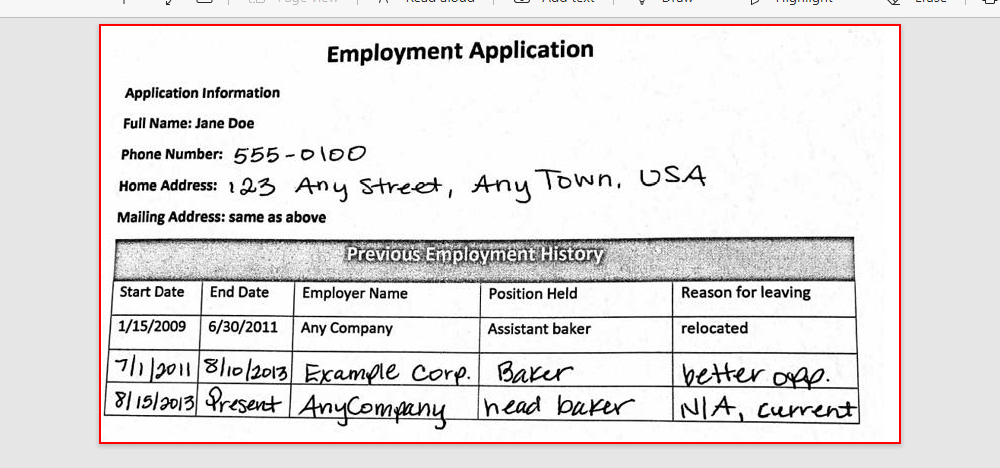 Page view Read aloud Add text Draw Highlight Erase
Employment Application
Application Information
Full Name: Jane Doe
Phone Number: 555-0100
Home Address: 123 Any Street, Any Town, USA
Mailing Address: same as above
Previous Employment History
Start Date End Date Employer Name Position Held Reason for leaving
1/15/2009 6/30/2011 Any Company Assistant baker relocated
7/1/2011 8/10/2013 Example Corp. Baker better opp.
8/15/2013 Present AnyCompany head baker N/A, current